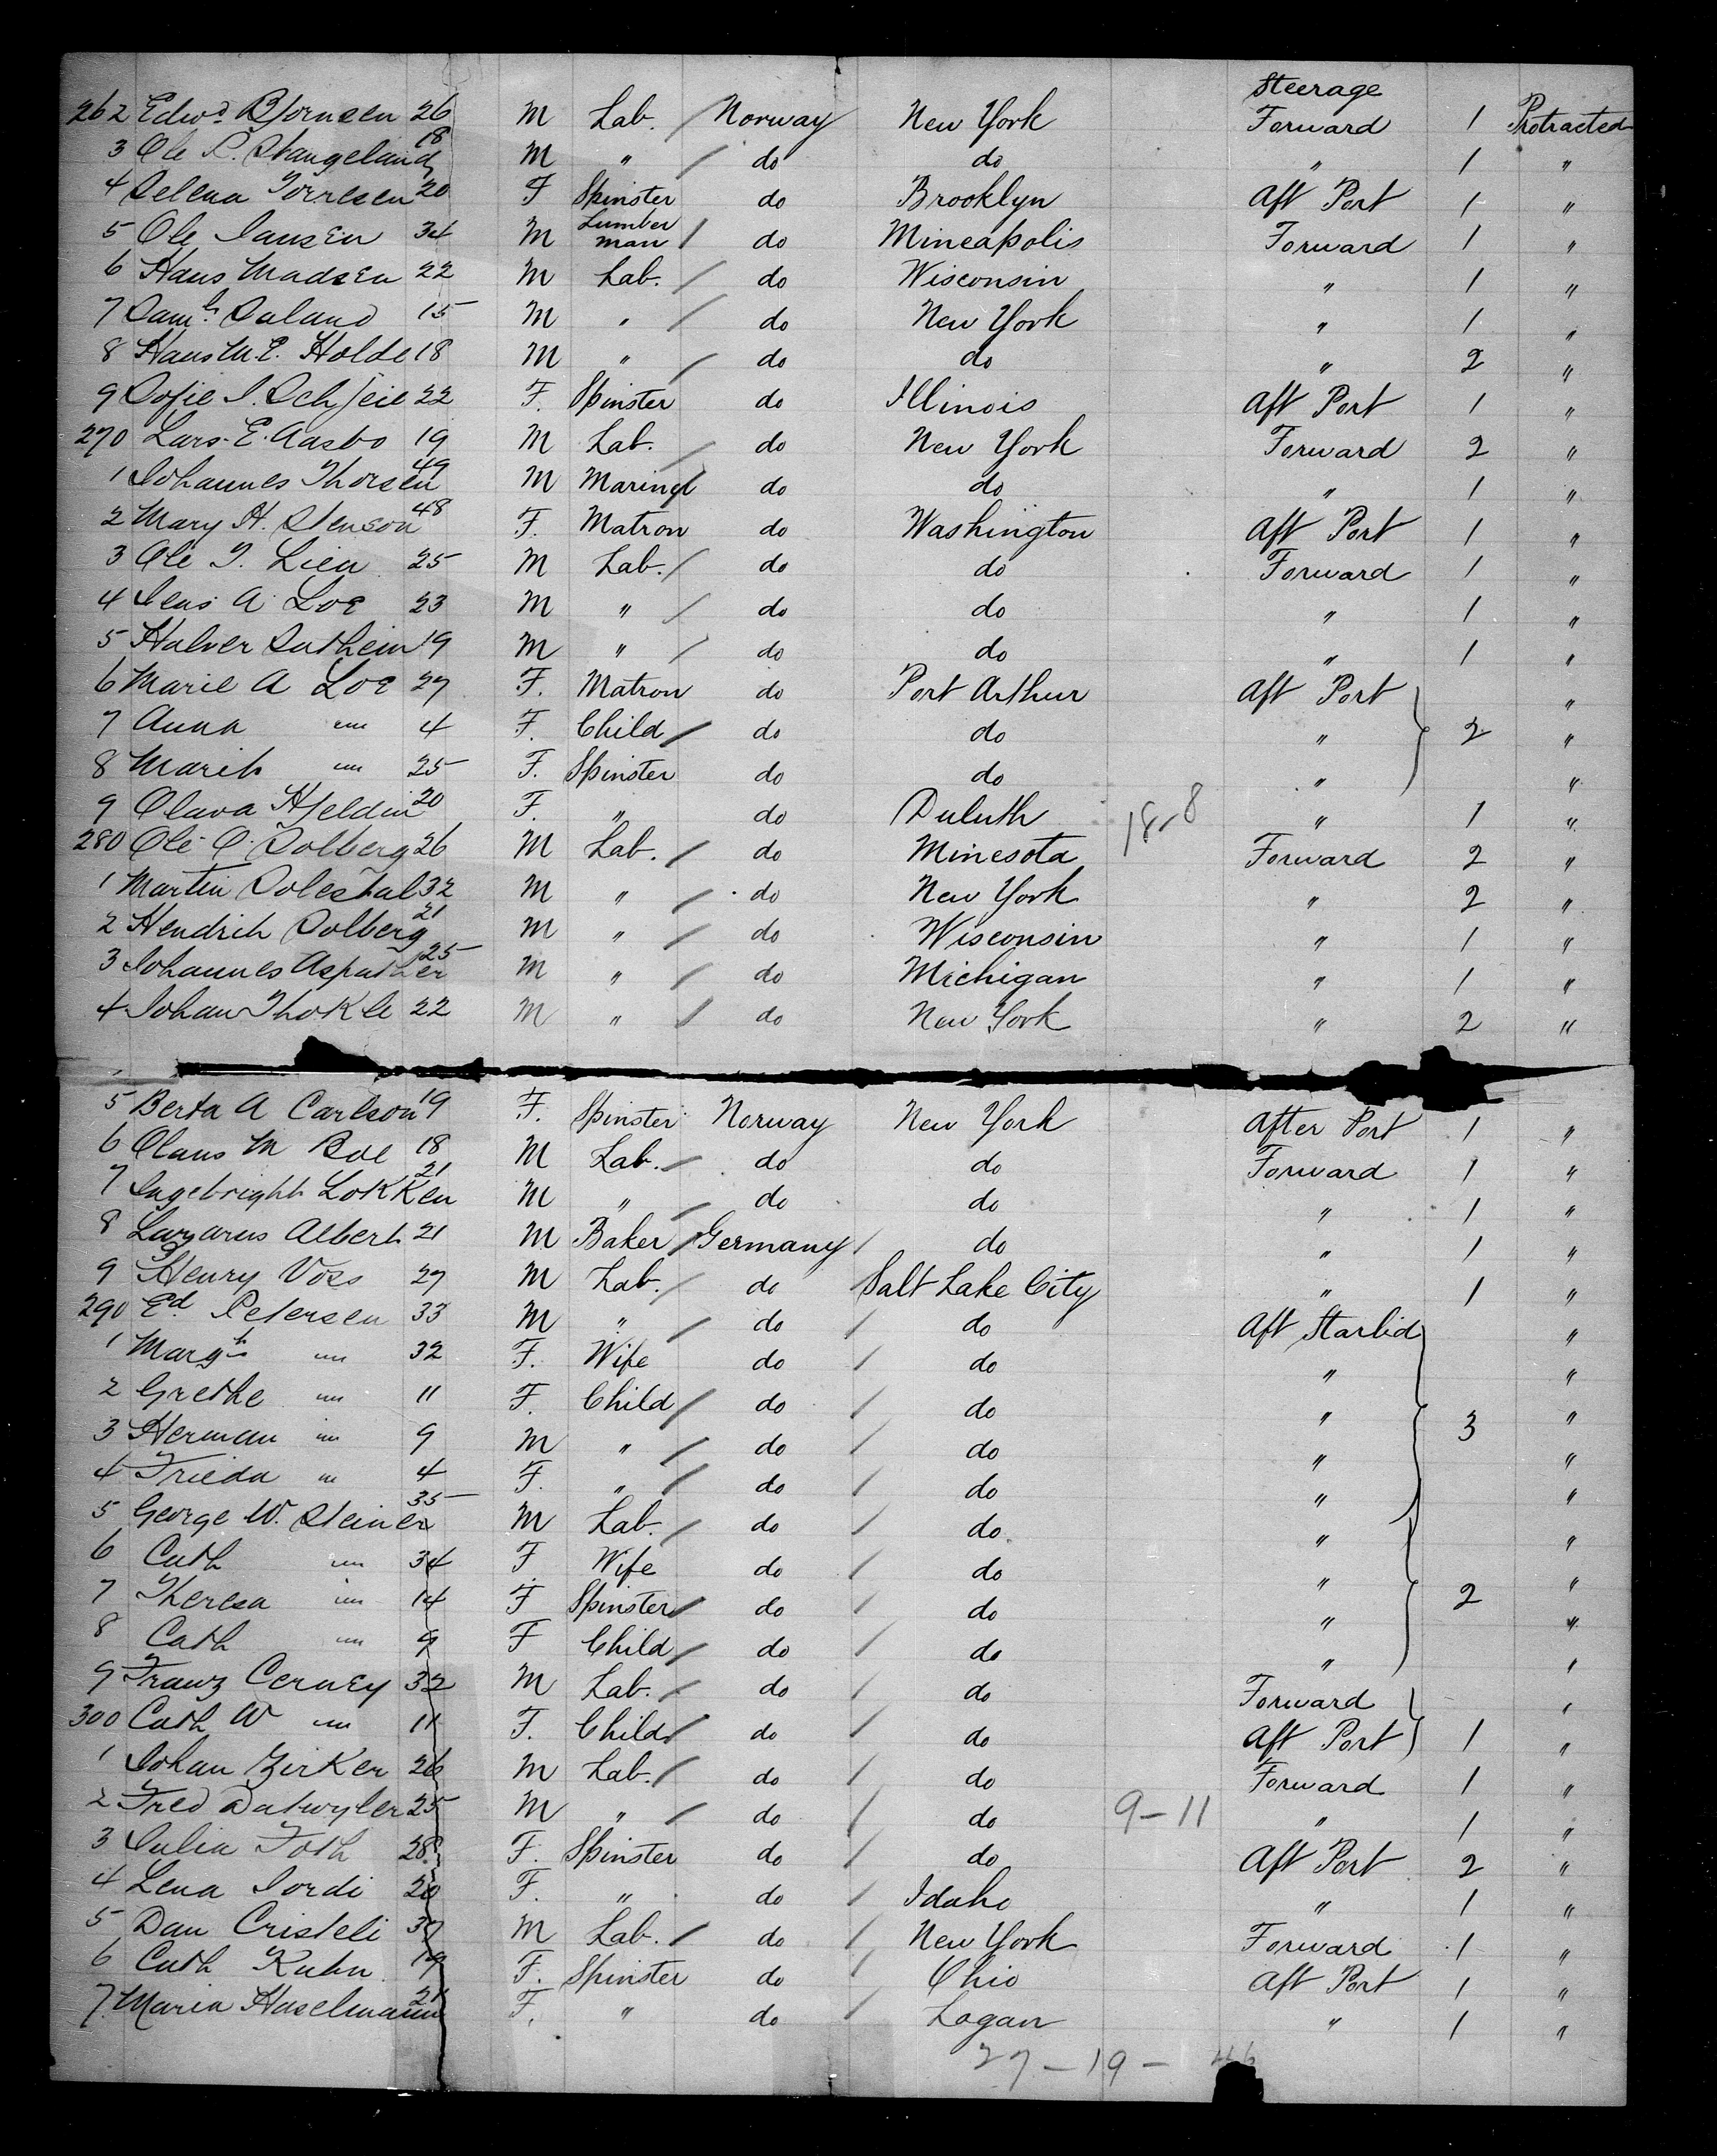 Steerage
262 Edwd Bjornsen 26 M Lab. / Norway New York Forward 1 Protracted
3 Ole L. Stangeland 18 M " / do do " 1 "
4 Selena Torresen 20 F Spinster do Brooklyn Aft Port 1 "
5 Ole Jansen 34 M Lumber man / do Mineapolis Forward 1 "
6 Hans Madsen 22 M Lab. / do Wisconsin " 1 "
7 Saml Saland 15 M " / do New York " 1 "
8 Hans M. E. Holde 18 M " / do do " 2 "
9 Sofie S. Schjeie 22 F. Spinster do Illinois Aft Port 1 "
270 Lars E. Aasbo 19 M Lab. / do New York Forward 2 "
1 Johannes Thorsen 49 M Mariner do do " 1 "
2 Mary H. Stenson 48 F. Matron do Washington Aft Port 1 "
3 Ole T. Lien 25 M Lab. / do do Forward 1 "
4 Jens A. Loe 23 M " / do do " 1 "
5 Halver Sutheim 19 M " / do do " 1 "
6 Marie A Loe 27 F. Matron do Port Arthur Aft Port "
7 Anna " 4 F. Child / do do " 2 "
8 Marih " 25 F. Spinster do do " "
9 Olava Hjeldin 20 F. " do Duluth 18-8 " 1 "
280 Ole O. Solberg 26 M Lab. / do Minesota Forward 2 "
1 Martin Solesdal 32 M " / do New York " 2 "
2 Hendrih Solberg 21 M " / do Wisconsin " 1 "
3 Johannes 25 M " / do Michigan " 1 "
4 Johan Thokle 22 M " / do New York " 2 "
5 Berta A Carlson 19 F. Spinster Norway New York After Port 1 "
6 Olaus M Boe 18 M Lab. / do do Forward 1 "
7 Ingebright Lokken 21 M " / do do " 1 "
8 Lazarus Albert 21 M Baker / Germany / do " 1 "
9 Henry Voss 27 M Lab. / do Salt Lake City " 1 "
290 Ed Petersen 33 M " / do / do Aft Starbd "
1 Margth " 32 F. Wife do / do " "
2 Grethe " 11 F. Child / do / do " "
3 Herman " 9 M " / do / do " 3 "
4 Frieda " 4 F. " / do / do " "
5 George W. Steiner 35 M Lab. / do / do " "
6 Cath " 34 F Wife do / do " "
7 Theresa " 14 F Spinster / do / do " 2 "
8 Cath " 9 F Child / do / do " "
9 Franz Cerney 32 M Lab. / do / do Forward "
300 Cath W " 11 F. Child / do / do Aft Port 1 "
1 Johan Zirker 26 M Lab. / do / do Forward 1 "
2 Fred Datwyler 25 M " / do / do 9-11 " 1 "
3 Julia Foth 28 F. Spinster do / do Aft Port 2 "
4 Lena Jordi 20 F. " do / Idaho " 1 "
5 Dan Cristeli 37 M Lab. / do / New York Forward 1 "
6 Cath Kuhn 19 F. Spinster do / Ohio Aft Port 1 "
7. Maria Haselmann 21 F. " do / Logan " 1 "
27-19- 46